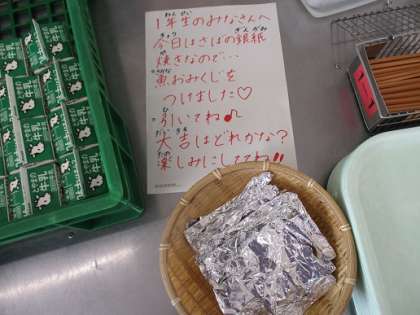 1年生のみなさんへ
今日はさばの銀紙
焼きなので…
魚おみくじを
つけました♡
引いてね♪
大吉はどれかな?
楽しみにしててね!!
牛乳